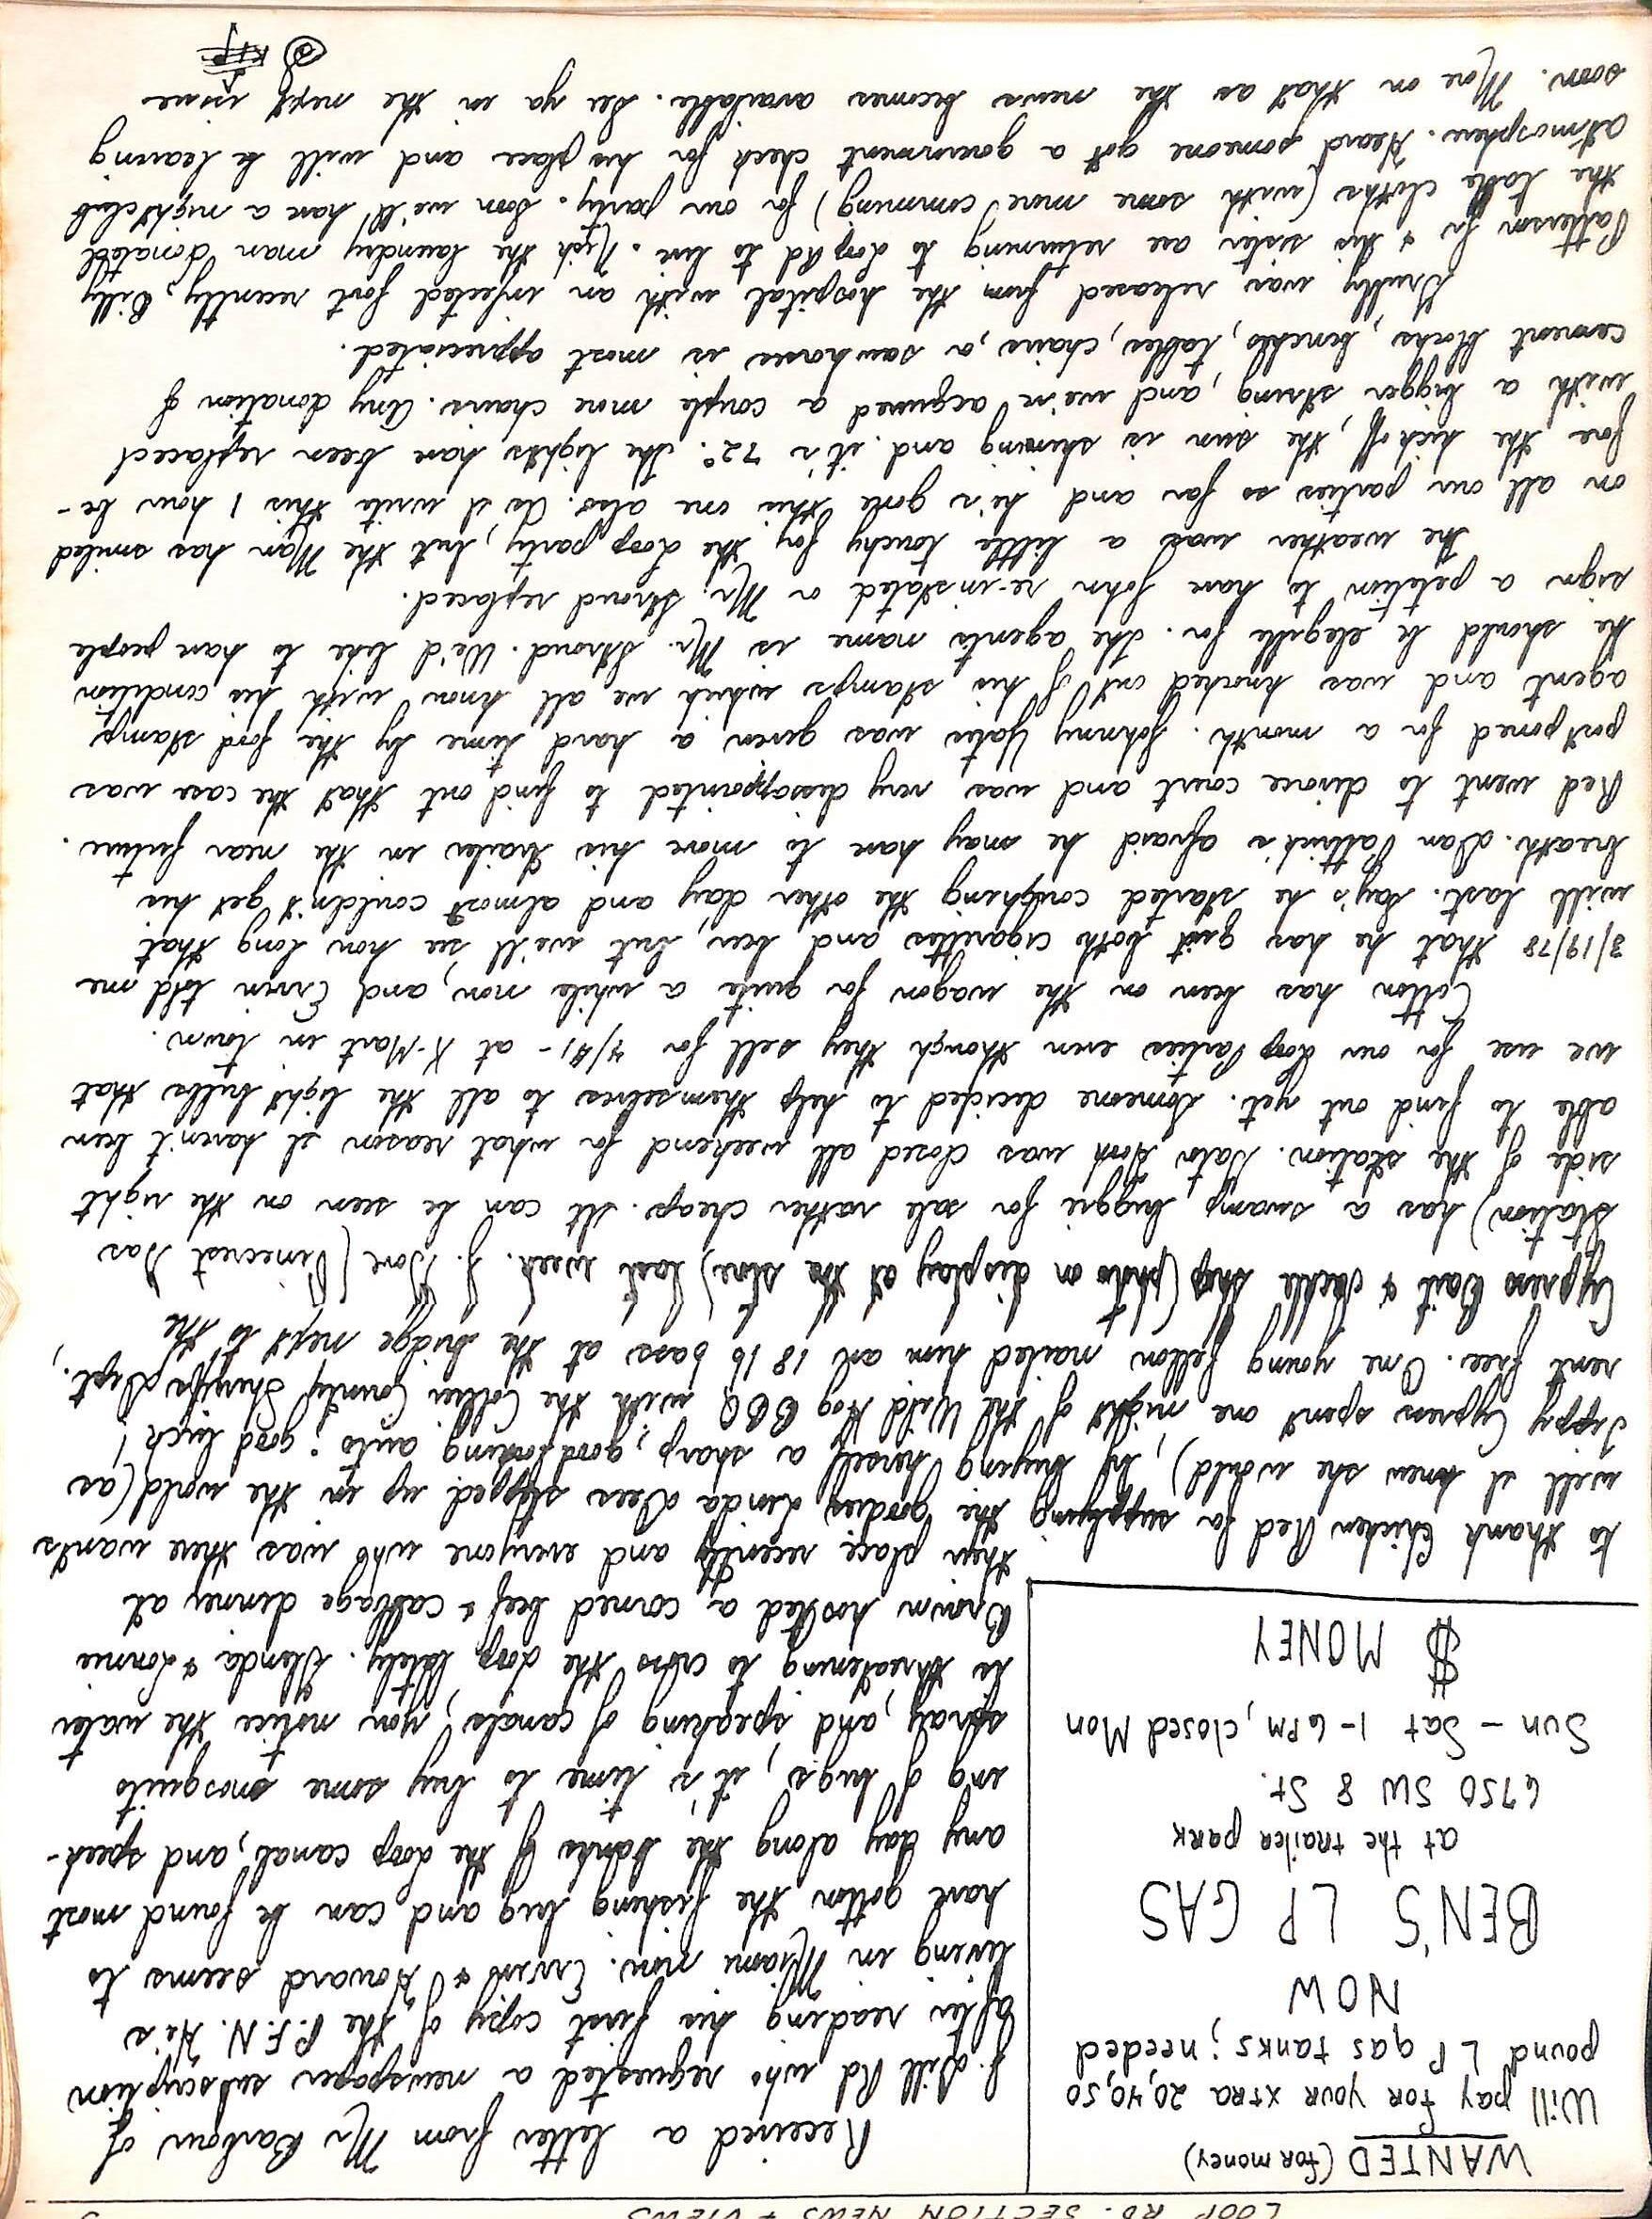 LOOP RD. SECTION NEWS + VIEWS
WANTED (for money)
Will pay for your xtra 20,40,50
pound LP gas tanks; needed
NOW
BEN'S LP GAS
at the trailer park
6750 SW 8 St.
Sun - Sat 1-6 PM, closed Mon
$ MONEY
Received a letter from Mr Barbour of
J. Dill Rd who requested a newspaper subscription
after reading his first copy of the P.F.N. He's
living in Miami now. Ervin & Howard seems to
have gotten the fishing bug and can be found most
any day along the banks of the Loop canal, and speak-
ing of bugs, it's time to buy some mosquito
spray, and speaking of canals, you notice the water
is threatening to cross the Loop lately. Glenda & Lonnie
Brown hosted a corned beef & cabbage dinner at
their place recently and everyone who was there wants
to thank Chicken Red for supplying the goodies. Linda Dees stepped up in the world (as
well I knew she would), by buying herself a sharp, good looking auto; good luck!
Tippy Cypress spent one night of the Wild Hog BBQ with the Collier County Sheriffs Dept.,
rent free. One young fellow nailed him an 18 lb bass at the bridge next to the
Cypress Bait & Tackle Shop (photo on display at the store) last week. J. Gore (Pinecrest Gas
Station) has a swamp buggie for sale rather cheap. It can be seen on the right
side of the station. Gator Hook was closed all weekend for what reason I haven't been
able to find out yet. Someone decided to help themselves to all the light bulbs that
we use for our Loop Parties even though they sell for 4/$1- at K-Mart in town.
Cotton has been on the wagon for quite a while now, and Ervin told me
3/19/78 that he has quit both cigarettes and beer, but we'll see how long that
will last. Say's he started coughing the other day and almost couldn't get his
breath. Dan Pattink's afraid he may have to move his trailer in the near future.
Red went to divorce court and was very dissappointed to find out that the case was
postponed for a month. Johnny Yates was given a hard time by the food stamp
agent and was knocked out of his stamps which we all know with his condition
he should be elegible for. The agents name is Mr. Stroud. We'd like to have people
sign a petetion to have John re-instated or Mr. Stroud replaced.
The weather was a little touchy for the Loop party, but the Man has smiled
on all our parties so far and he's gotta this one also. As I write this 1 hour be-
fore the kickoff, the sun is shining and it's 72°. The lights have been replaced
with a bigger string, and we've acquired a couple more chairs. Any donation of
cement blocks, benches, tables, chairs, a sawhorses is most appreciated.
Brully was released from the hospital with an infected foot recently, Billy
Patterson Jr & his sister are returning to Loop Rd to live. Nick the laundry man donated
the table cloths (with some more comming) for our party. Soon we'll have a nightclub
atmosphere. Heard someone got a government check for his place and will be leaving
soon. More on that as the news becomes available. See ya in the next issue